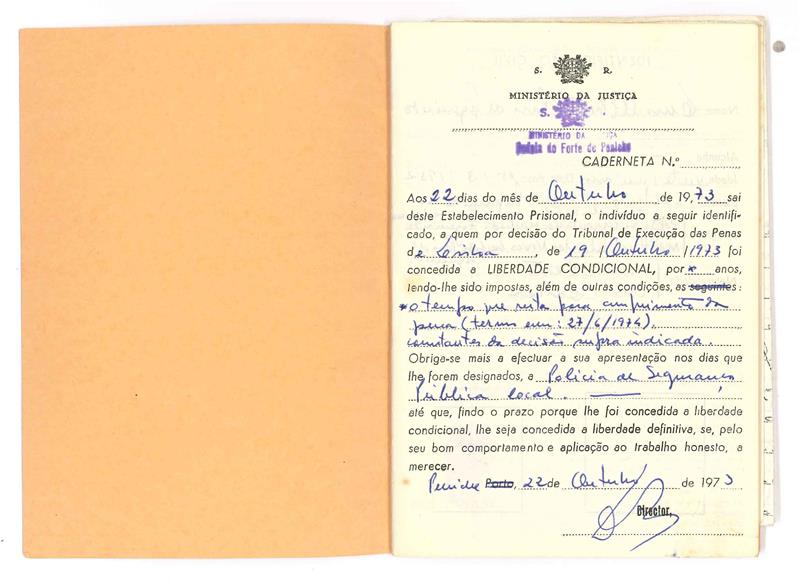 S. R.
MINISTÉRIO DA JUSTIÇA
S.
MINISTÉRIO DA JUSTIÇA
Cadeia do Forte de Peniche
CADERNETA N.º
Aos 22 dias do mês de Outubro de 1973 sai
deste Estabelecimento Prisional, o indivíduo a seguir identifi-
cado, a quem por decisão do Tribunal de Execução das Penas
de Lisboa, de 19/Outubro/1973 foi
concedida a LIBERDADE CONDICIONAL, por * anos,
tendo-lhe sido impostas, além de outras condições, as seguintes:
* o tempo que resta para cumprimento da
pena (termo em: 27/6/1974).
constantes da decisão supra indicada.
Obriga-se mais a efectuar a sua apresentação nos dias que
lhe forem designados, a Polícia de Segurança
Pública local.
até que, findo o prazo porque lhe foi concedida a liberdade
condicional, lhe seja concedida a liberdade definitiva, se, pelo
seu bom comportamento e aplicação ao trabalho honesto, a
merecer.
Peniche Porto, 22 de Outubro de 1973
Director,